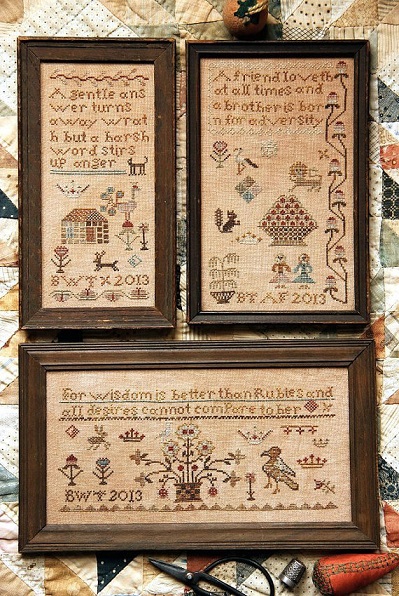 A gentle ans
wer turns
away wrat
h but a harsh
word stirs
up anger
BWTX 2013
A friend loveth
at all times and
a brother is bor
n for adversity
BTAF 2013
For wisdom is better than Rubies and
all desires cannot compare to her
BWT 2013